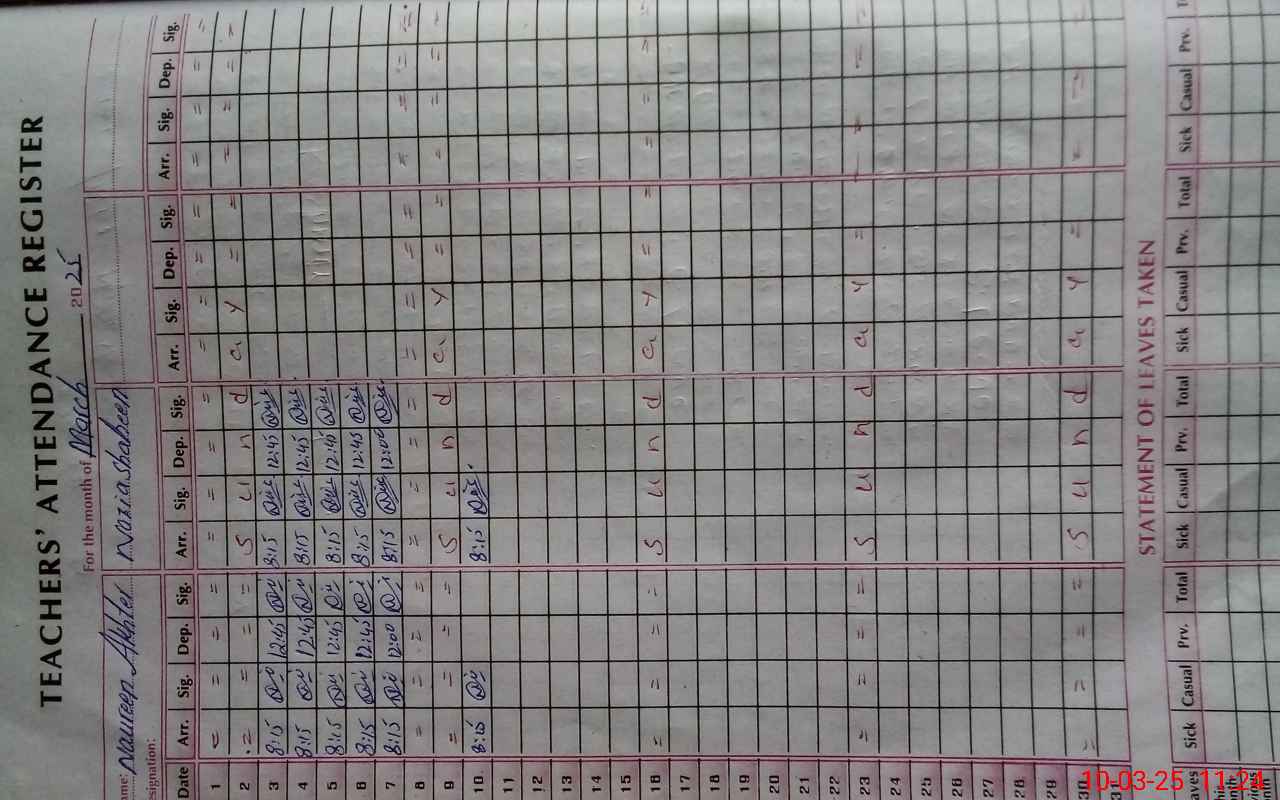 TEACHERS' ATTENDANCE REGISTER
For the month of March 2025
ame: Naureen Akhter Nazia Shaheen
esignation:
Date Arr. Sig. Dep. Sig. Arr. Sig. Dep. Sig. Arr. Sig. Dep. Sig. Arr. Sig. Dep. Sig.
1 = = = = = = = = = = = = = = = =
2 = = = = S u n d a y = = = = = =
3 8:15 12:45 8:15 12:45
4 8:15 12:45 8:15 12:45
5 8:15 12:45 8:15 12:45
6 8:15 12:45 8:15 12:45
7 8:15 12:00 8:15 12:00
8 = = = = = = = = = = = = = = = =
9 = = = = S u n d a y = = = = = =
10 8:15 8:15
11
12
13
14
15
16 = = = = S u n d a y = = = = = =
17
18
19
20
21
22
23 = = = = S u n d a y = = = = =
24
25
26
27
28
29
30 = = = = S u n d a y = = =
31
STATEMENT OF LEAVES TAKEN
aves Sick Casual Prv. Total Sick Casual Prv. Total Sick Casual Prv. Total Sick Casual Prv.
10-03-25 11:24